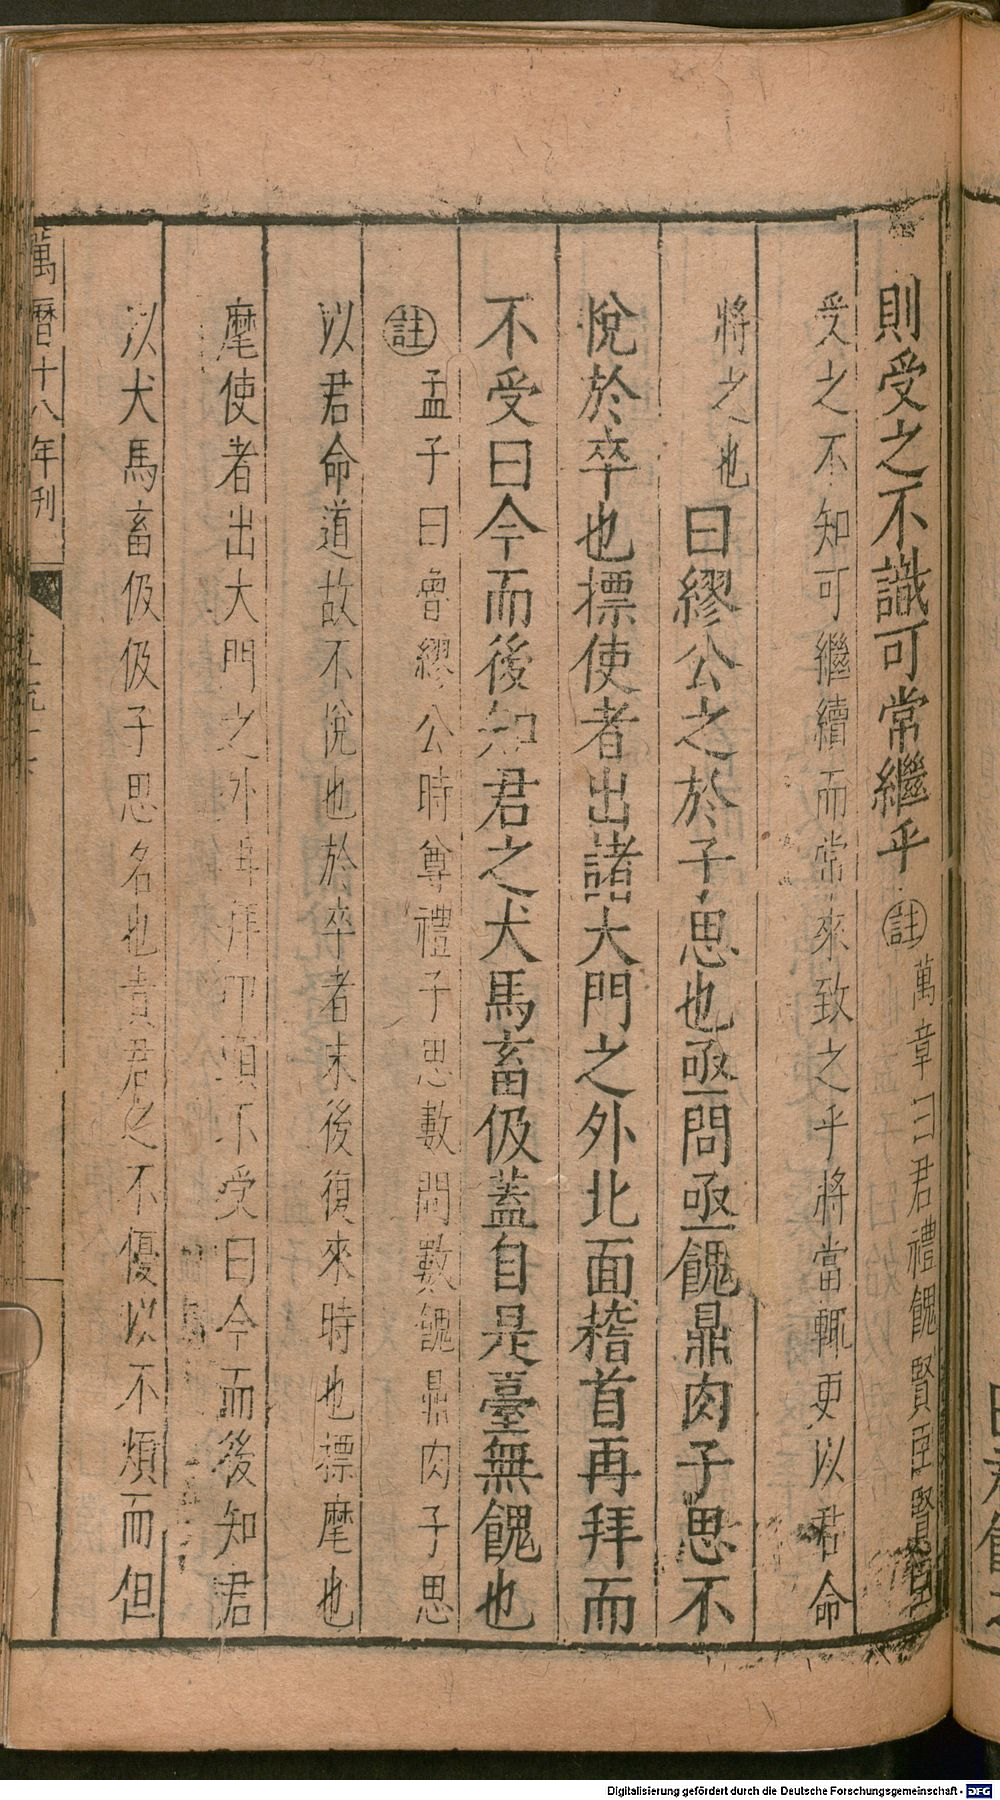 則受之不識可常繼乎註萬章曰君禮餽賢臣賢臣
受之不知可繼續而常來致之乎將當輒更以君命
將之也曰繆公之於子思也亟問亟餽鼎肉子思不
悅於卒也摽使者出諸大門之外北面稽首再拜而
不受曰今而後知君之犬馬畜伋蓋自是臺無餽也
註孟子曰魯繆公時尊禮子思數問數餽鼎肉子思
以君命道故不悅也於卒者末後復來時也摽麾也
麾使者出大門之外再拜叩頭不受曰今而後知君
以犬馬畜伋伋子思名也責君之不優以不煩而但
萬曆十八年刊
Digitalisierung gefördert durch die Deutsche Forschungsgemeinschaft - DFG